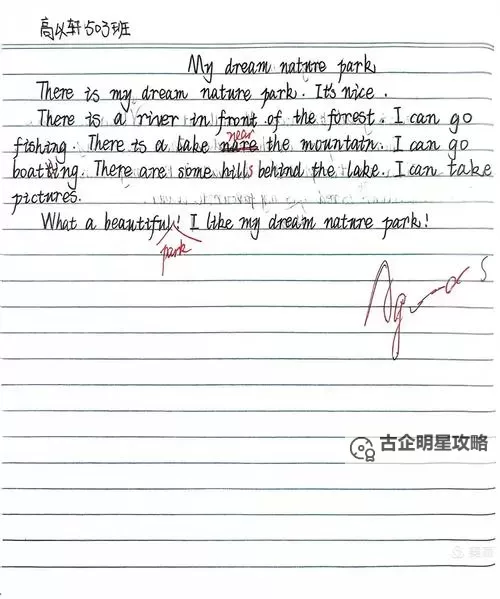 高以轩 503班
My dream nature park
There is my dream nature park. It's nice.
There is a river in front of the forest. I can go
near
fishing. There is a lake nare the mountain. I can go
boatting. There are some hills behind the lake. I can take
pictures.
What a beautiful! I like my dream nature park!
park
古企明星攻略